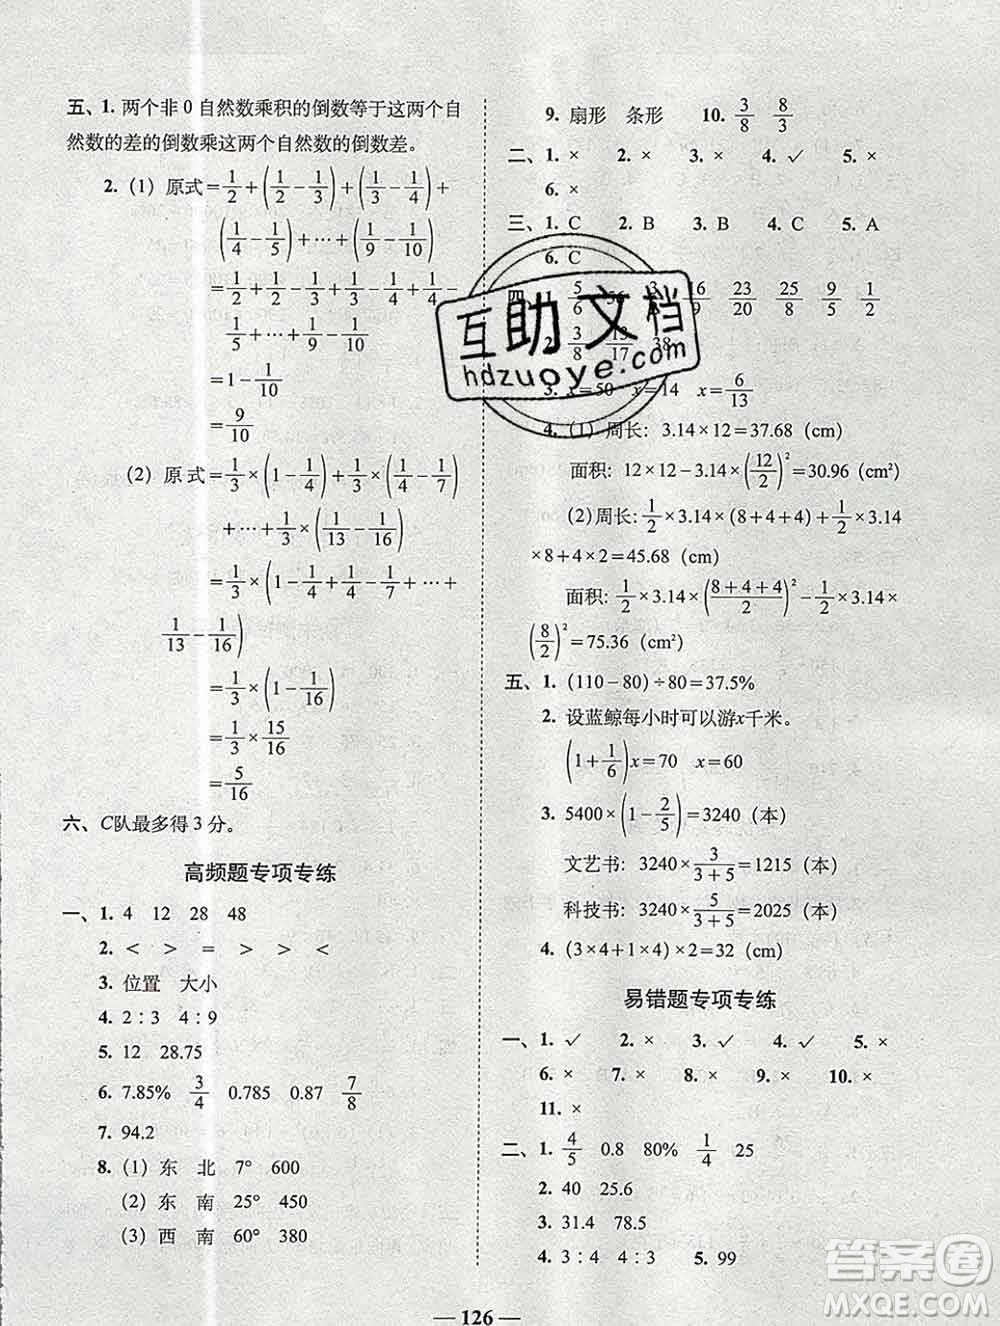 五、1. 两个非 0 自然数乘积的倒数等于这两个自
然数的差的倒数乘这两个自然数的倒数差。
2. (1) 原式=1/2+(1/2−1/3)+(1/3−1/4)+
(1/4−1/5)+⋯+(1/9−1/10)
=1/2+1/2−1/3+1/3−1/4+1/4−
1/5+⋯+1/9−1/10
=1−1/10
=9/10
(2) 原式=1/3×(1−1/4)+1/3×(1/4−1/7)
+⋯+1/3×(1/13−1/16)
=1/3×(1−1/4+1/4−1/7+⋯+
1/13−1/16)
=1/3×(1−1/16)
=1/3×15/16
=5/16
六、C队最多得 3 分。
高频题专项专练
一、1. 4 12 28 48
2. < > = > > <
3. 位置 大小
4. 2:3 4:9
5. 12 28.75
6. 7.85% 3/4 0.785 0.87 7/8
7. 94.2
8. (1) 东 北 7° 600
(2) 东 南 25° 450
(3) 西 南 60° 380
9. 扇形 条形 10. 3/8 8/3
二、1. × 2. × 3. × 4. ✓ 5. ×
6. ×
三、1. C 2. B 3. B 4. C 5. A
6. C
四、1. 5/6 56 23/20 25/8 9/5 1/2
2. 3/8 13/17 38
3. x=50 x=14 x=6/13
4. (1) 周长: 3.14×12=37.68 (cm)
面积: 12×12−3.14×(12/2)²=30.96 (cm²)
(2)周长: 1/2×3.14×(8+4+4)+1/2×3.14
×8+4×2=45.68 (cm)
面积: 1/2×3.14×((8+4+4)/2)²+1/2×3.14×
(8/2)²=75.36 (cm²)
五、1. (110−80)÷80=37.5%
2. 设蓝鲸每小时可以游x千米。
(1+1/6)x=70 x=60
3. 5400×(1−2/5)=3240 (本)
文艺书: 3240×3/(3+5)=1215 (本)
科技书: 3240×5/(3+5)=2025 (本)
4. (3×4+1×4)×2=32 (cm)
易错题专项专练
一、1. ✓ 2. × 3. ✓ 4. ✓ 5. ×
6. × 7. × 8. × 9. × 10. ×
11. ×
二、1. 4/5 0.8 80% 1/4 25
2. 40 25.6
3. 31.4 78.5
4. 3:4 4:3 5. 99
— 126 —
互助文档
hdzuoye.com
答案圈
MXQE.COM